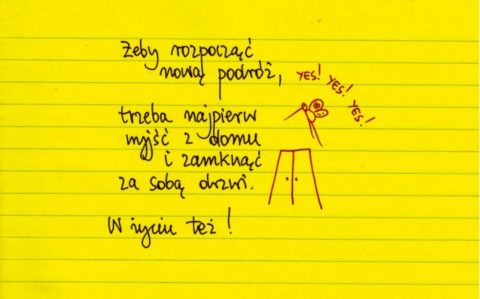 Żeby rozpocząć
nową podróż,
YES! YES! YES!
trzeba najpierw
wyjść z domu
i zamknąć
za sobą drzwi.
W życiu też!